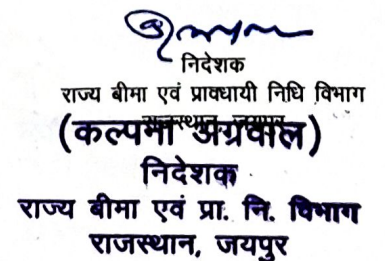 निदेशक
राज्य बीमा एवं प्रावधायी निधि विभाग
राजस्थान, जयपुर
(कल्पना अग्रवाल)
निदेशक
राज्य बीमा एवं प्रा. नि. विभाग
राजस्थान, जयपुर